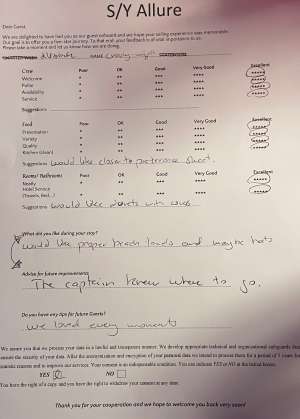 S/Y Allure
Dear Guest,
We are delighted to have had you as our guest onboard and we hope your sailing experience was memorable.
Our Goal is to offer you a five star journey. To that end your feedback is of vital importance to us.
Please take a moment and let us know how we are doing.
Crew Poor OK Good Very Good Excellent
Welcome * ** *** **** *****
Polite * ** *** **** *****
Availability * ** *** **** *****
Service * ** *** **** *****
Suggestions
Food Poor OK Good Very Good Excellent
Presentation * ** *** **** *****
Variety * ** *** **** *****
Quality * ** *** **** *****
Kitchen (clean) * ** *** **** *****
Suggestions would like closer to preference sheet.
Rooms/ Bathrooms Poor OK Good Very Good Excellent
Neatly * ** *** **** *****
Hotel Service
(Towels, Bed...) * ** *** **** *****
Suggestions would like duvets with
What did you like during your stay?
would like proper beach and maybe hats
Advice for future improvements
The captain knew where to go.
Do you have any tips for future Guests?
we loved every moment
We assure you that we process your data in a lawful and transparent manner. We develop appropriate technical and organizational safeguards that
ensure the security of your data. After the anonymization and encryption of your personal data we intend to process them for a period of 5 years for
reasons and to improve our services. Your consent is an indispensable condition. You can indicate YES or NO at the listed boxes.
YES NO
You have the right of a copy, and you have the right to withdraw your consent at any time.
Thank you for your cooperation and we hope to welcome you back very soon!